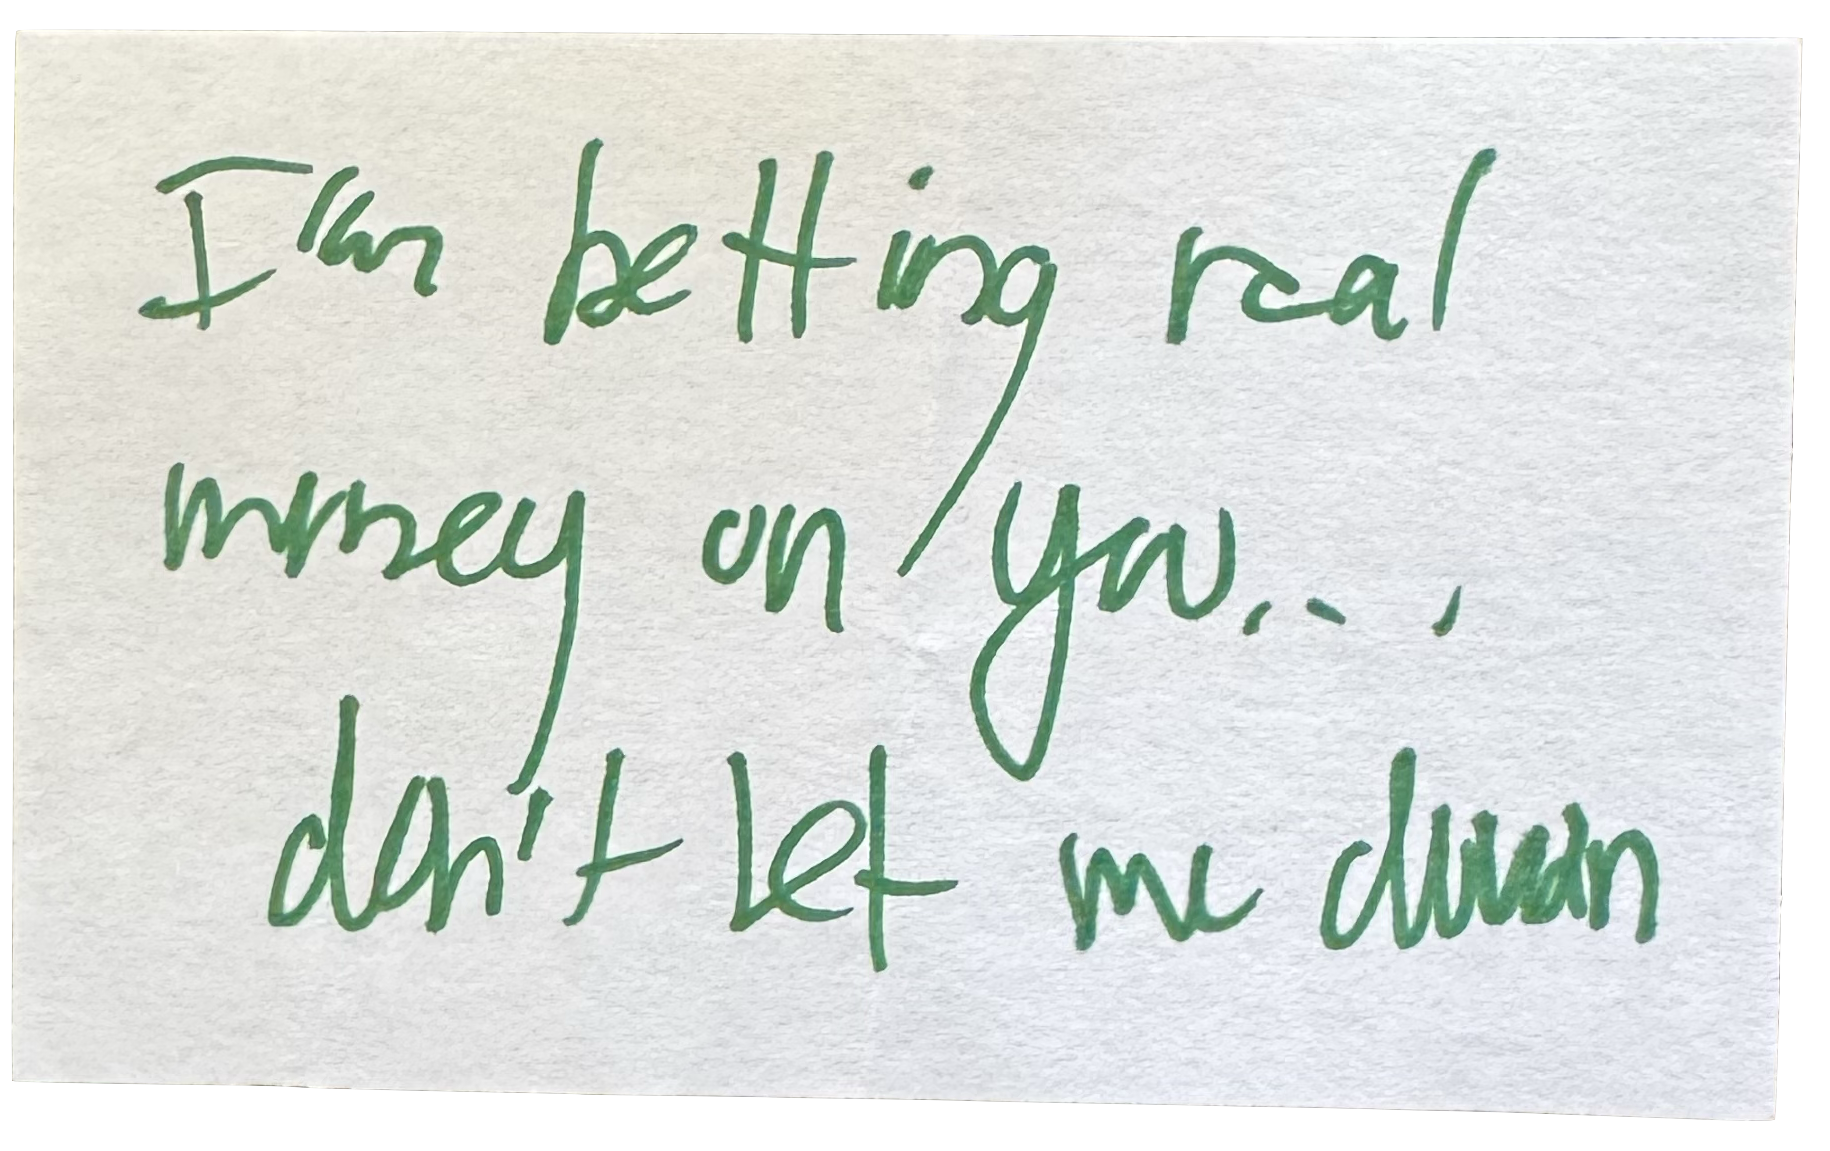 I'm betting real
money on you...
don't let me down